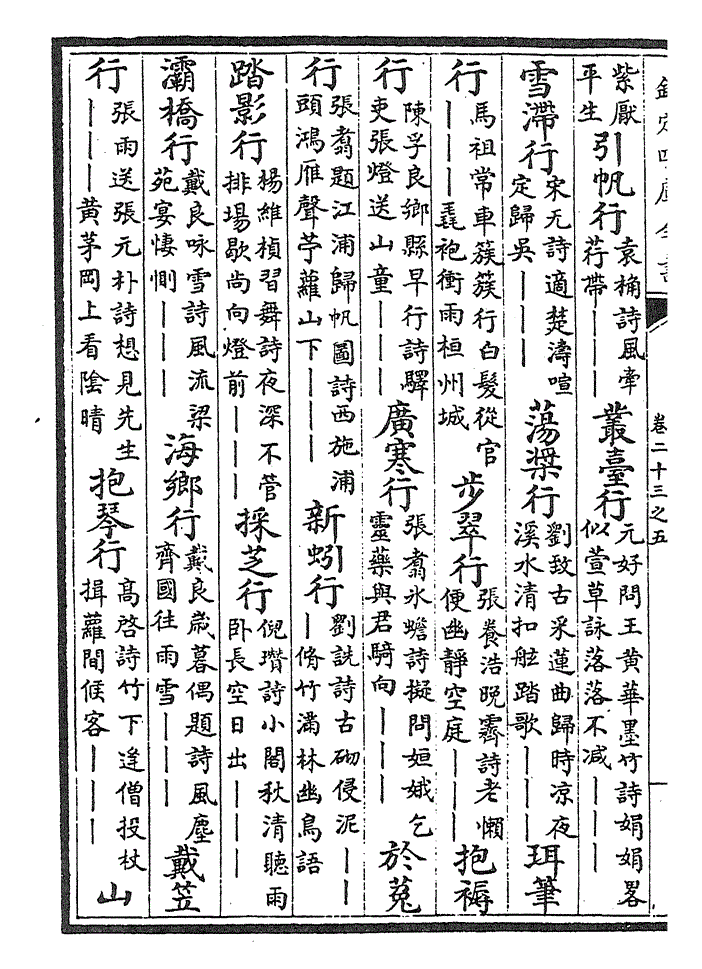 欽定四庫全書
卷二十三之五
紫厭平生 引帆行 袁桷詩風牽荇帶丨丨丨 叢臺行 元好問王黃華墨竹詩娟娟畧似萱草詠落落不减丨丨丨
雪滯行 宋无詩適楚濤喧定歸吳丨丨丨 蕩槳行 劉致古采蓮曲歸時凉夜溪水清扣舷踏歌丨丨丨 珥筆
行 馬祖常車簇簇行白髮從官丨丨丨毳袍衝雨桓州城 步翠行 張養浩晚霽詩老懶便幽静空庭丨丨丨 抱褥
行 陳孚良鄉縣早行詩驛吏張燈送山童丨丨丨 廣寒行 張翥氷蟾詩擬問姮娥乞靈藥與君騎向丨丨丨 於菟
行 張翥題江浦歸帆圖詩西施浦頭鴻雁聲苧蘿山下丨丨丨 新蚓行 劉詵詩古砌侵泥丨丨丨脩竹滿林幽鳥語
踏影行 楊維楨習舞詩夜深不管排場歇尚向燈前丨丨丨 採芝行 倪瓚詩小閣秋清聽雨卧長空日出丨丨丨
灞橋行 戴良咏雪詩風流梁苑宴悽惻丨丨丨 海鄉行 戴良歲暮偶題詩風塵齊國往雨雪丨丨丨 戴笠
行 張雨送張元朴詩想見先生丨丨丨黃茅岡上看陰晴 抱琴行 高啓詩竹下逢僧投杖揖蘿間候客丨丨丨 山